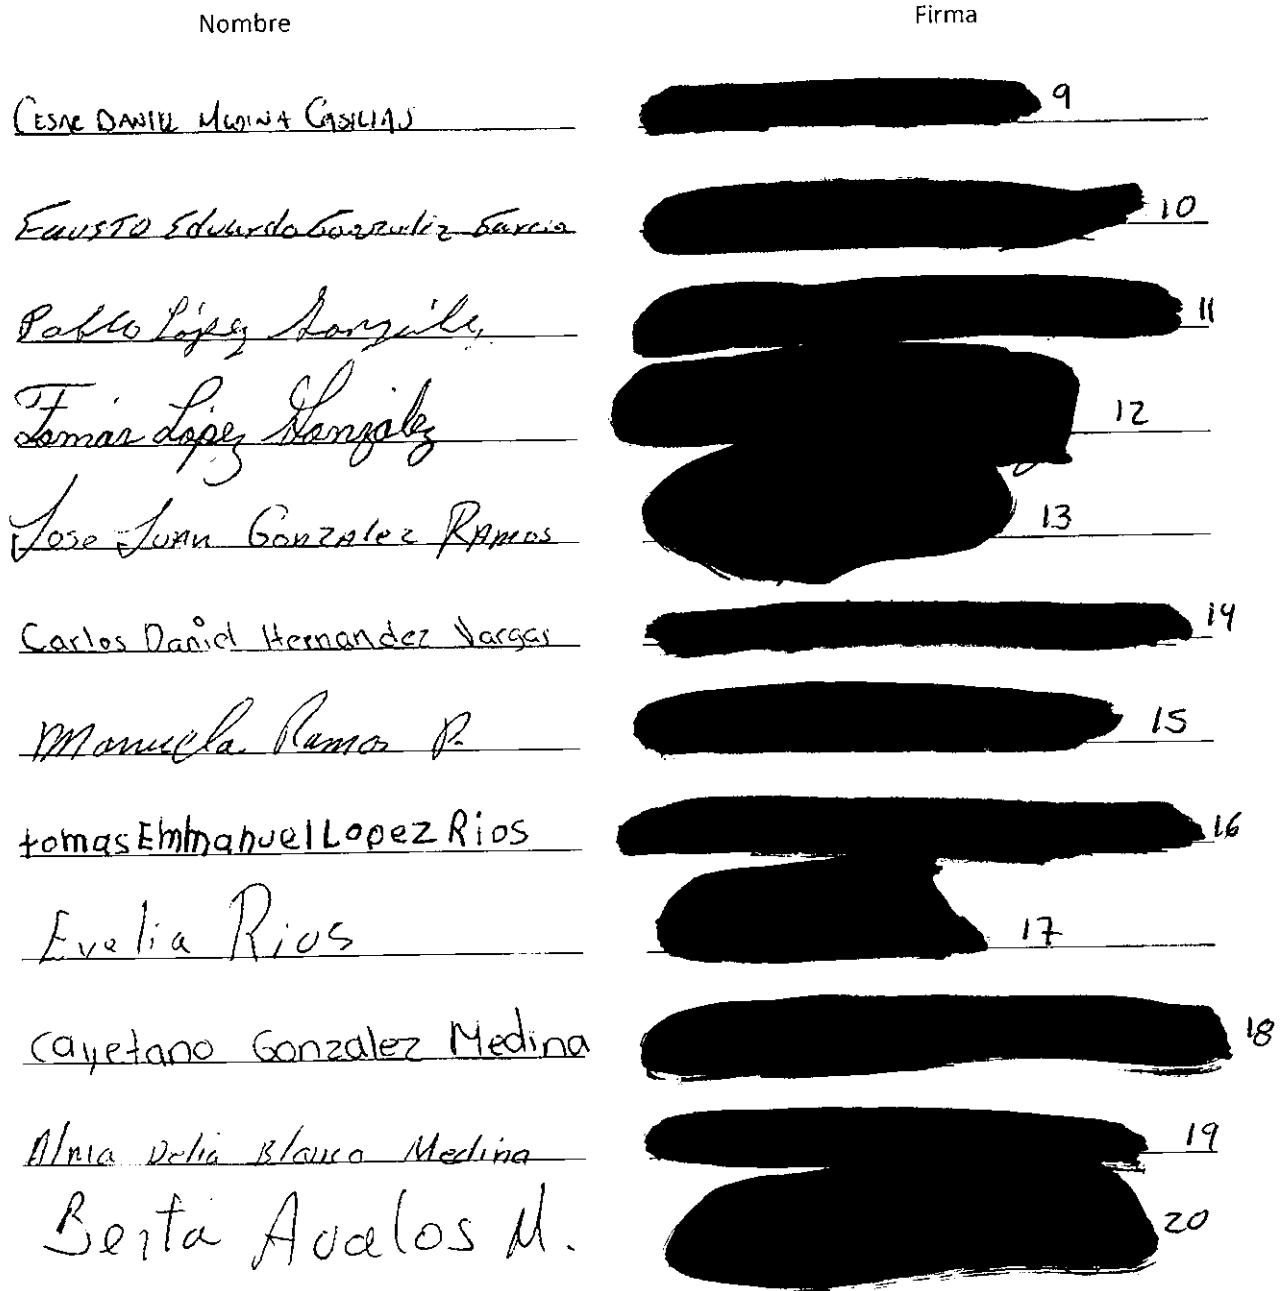 Nombre Firma
CESAR DANIEL MEDINA CASILLAS 9
FAUSTO Eduardo Gonzalez Garcia 10
Pablo López González 11
Tomás López González 12
Jose Juan Gonzalez Ramos 13
Carlos Daniel Hernandez Vargas 14
Manuela Ramos P. 15
tomas Emmanuel Lopez Rios 16
Evelia Rios 17
Cayetano Gonzalez Medina 18
Alma Delia Blanco Medina 19
Berta Avalos M. 20